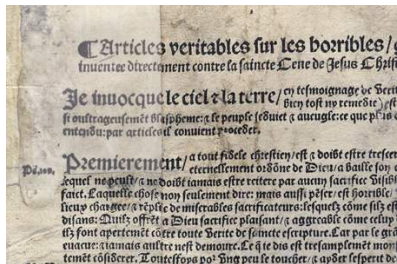 ¶ Articles veritables sur les horribles / g
inuentee directement contre la saincte Cene de Jesus Chris
Je inuocque le ciel ⁊ la terre / en tesmoignage de Verit
bien tost ny remedie) est
si oultrageusemēt blaspheme: ⁊ le peuple seduict ⁊ aucugle: ce que plus
entendu: par articles il conuient proceder.
Premierement / a tout fidele chrestien / est ⁊ doibt estre trescer
eternellement ordōne de Dieu / a baille son
lequel ne peult / ⁊ ne doibt iamais estre reitere par aucun sacrifice Visib
faict. Laquelle chose non seulement dire: mais aussi pēser / est horrible /
lieux chargee / ⁊ rēplie de miserables sacrificateurs: lesquelz cōme silz est
disans: Quilz offrēt a Dieu sacrifice plaisant / ⁊ aggreable cōme celuy
ilz sont apertemēt cōtre toute Verite de saincte escripture. Car par le grā
euacue: ⁊ iamais aultre nest demoure. Ce q̄ ie dis est tresamplemēt mon
temēt cōsiderer. Toutesfoys po² Vng peu le toucher / ⁊ ayder lesperit de